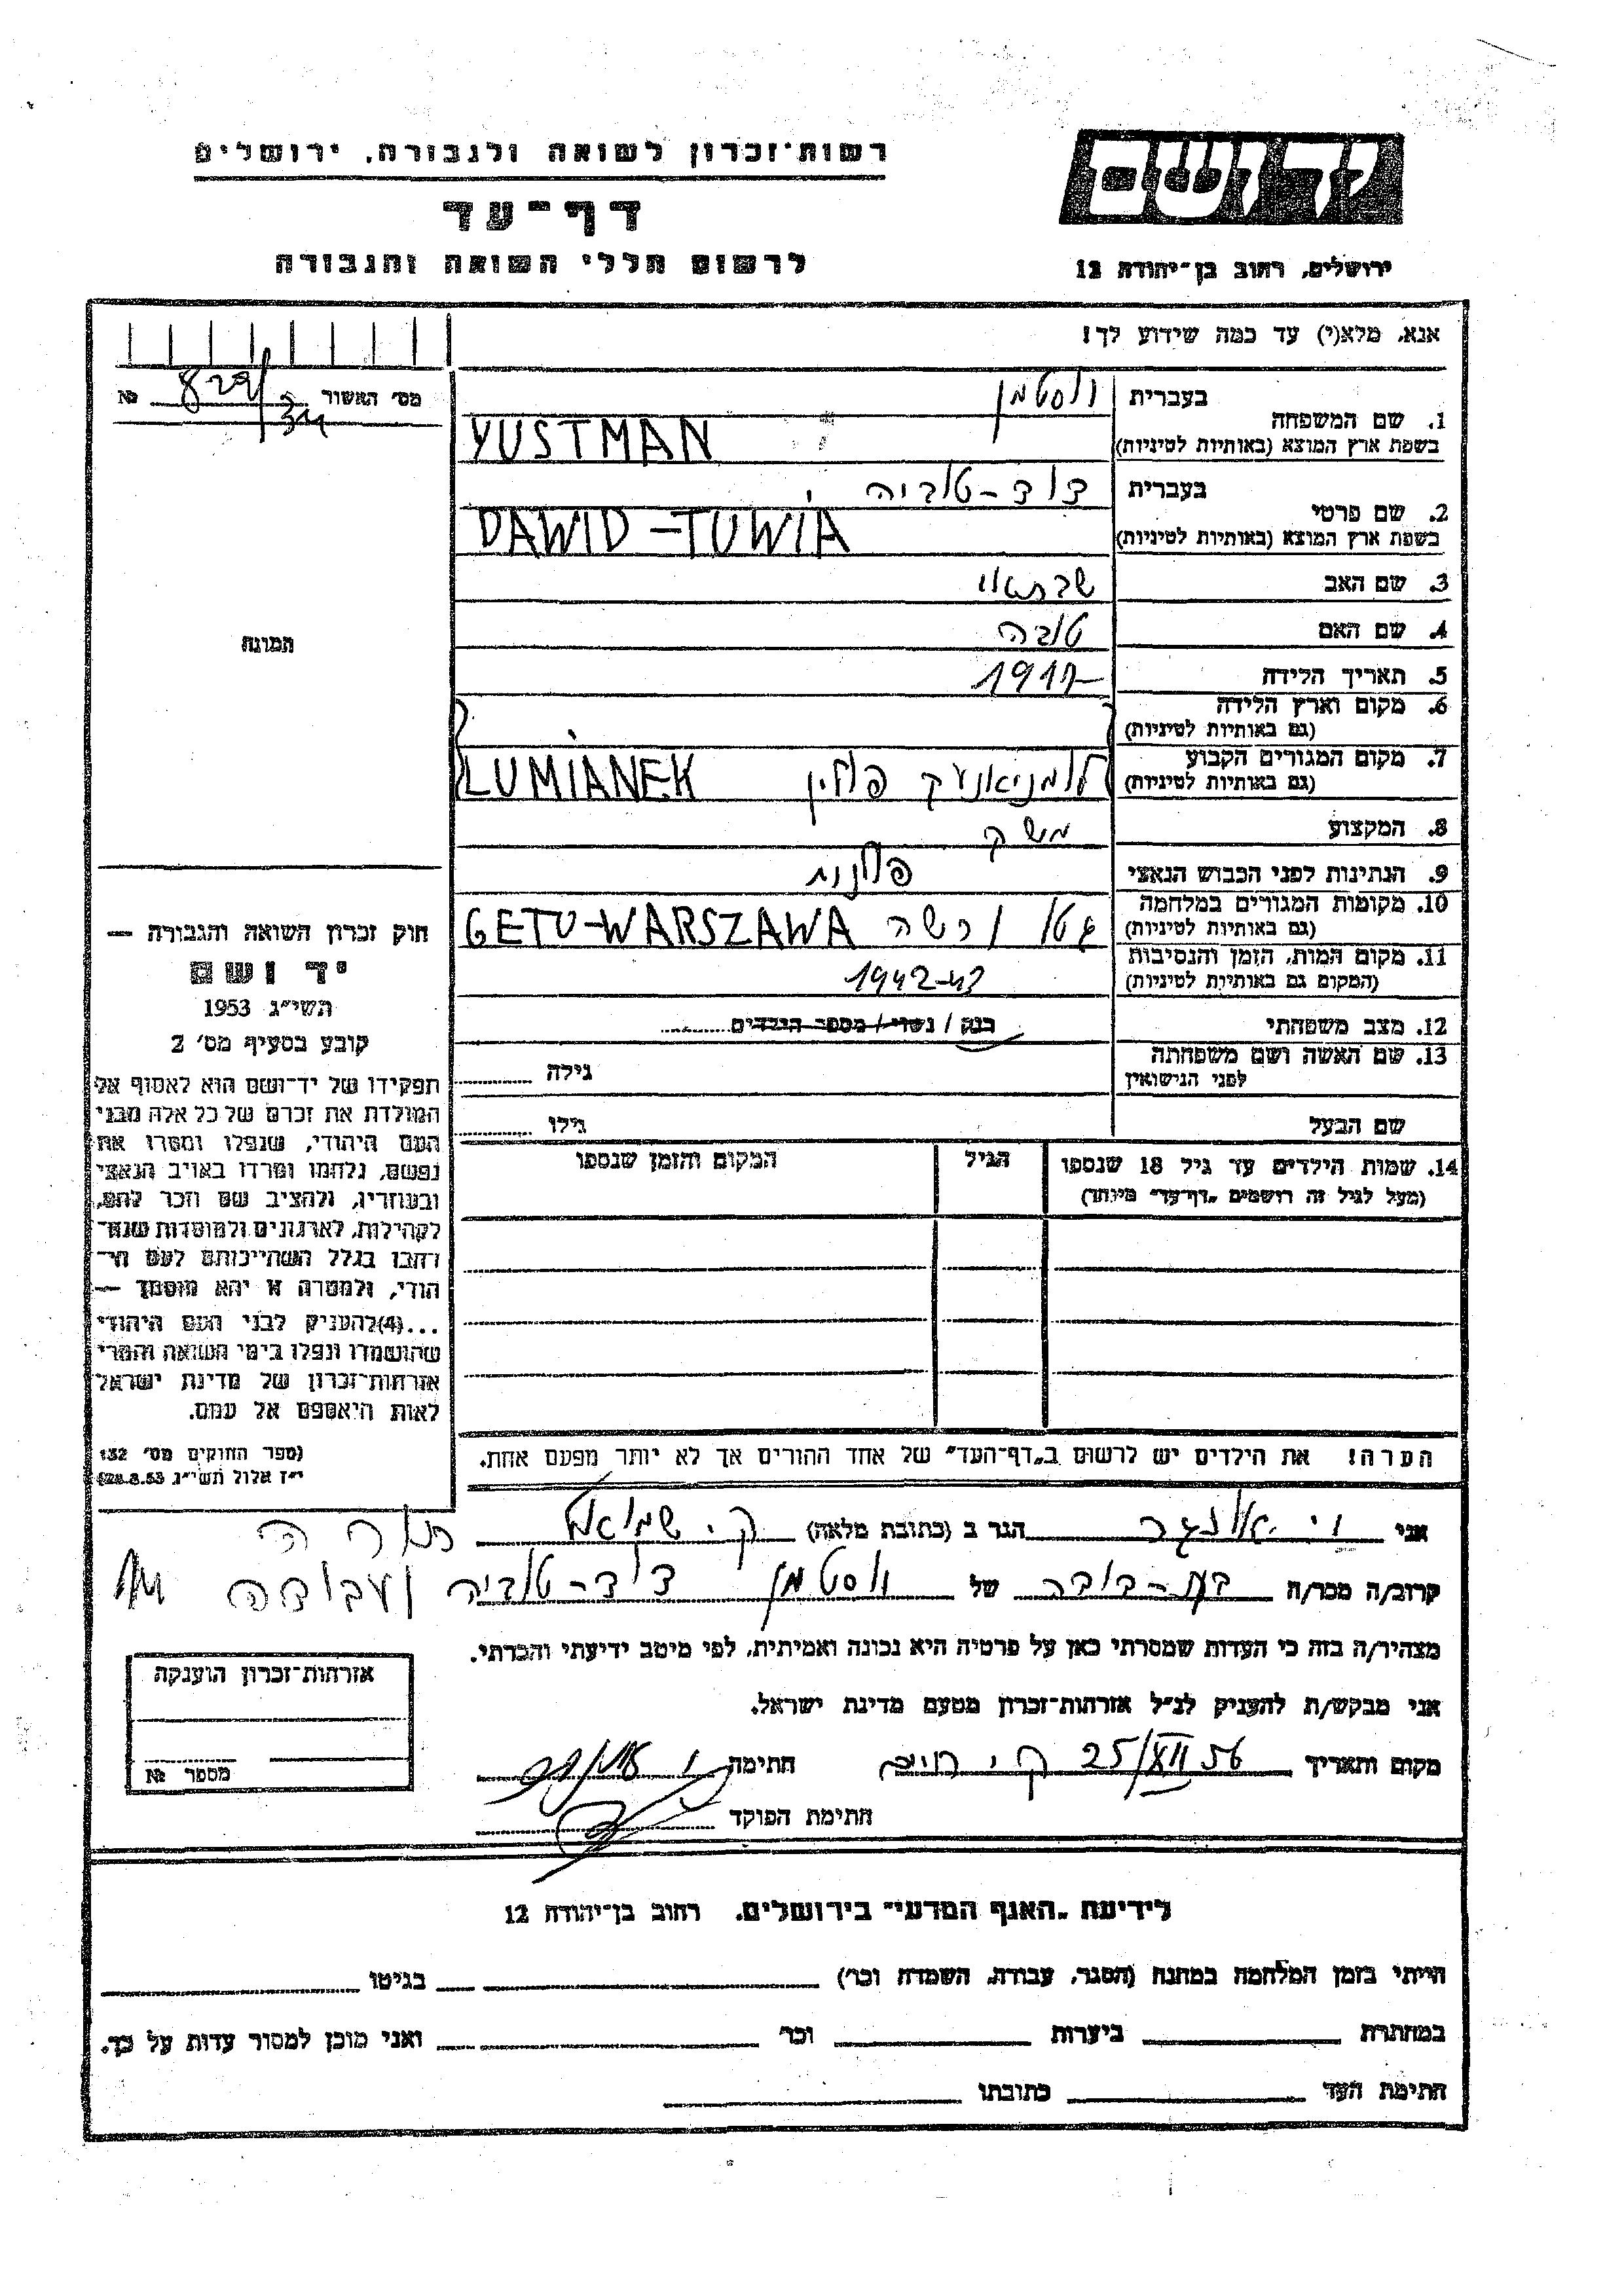 יד ושם
ירושלים, רחוב בן־יהודה 12
רשות־זכרון לשואה ולגבורה, ירושלים
דף־עד
לרשום חללי השואה והגבורה
אנא, מלא(י) עד כמה שידוע לך!
מס׳ האשור 829/34 №
1. שם המשפחה
בעברית וסטמן
בשפת ארץ המוצא (באותיות לטיניות) YUSTMAN
2. שם פרטי
בעברית דוד-טוביה
בשפת ארץ המוצא (באותיות לטיניות) DAWID-TUWIA
3. שם האב שבתאי
4. שם האם טובה
5. תאריך הלידה 1917
6. מקום וארץ הלידה
(גם באותיות לטיניות)
7. מקום המגורים הקבוע
(גם באותיות לטיניות) לומיאנעק פולין LUMIANEK
8. המקצוע
9. הנתינות לפני הכבוש הנאצי פולנית
10. מקומות המגורים במלחמה
(גם באותיות לטיניות) גטו ורשה GETU-WARSZAWA
11. מקום המות, הזמן והנסיבות
(המקום גם באותיות לטיניות) 1942-43
12. מצב משפחתי רווק / נשוי / מספר הילדים
13. שם האשה ושם משפחתה
לפני הנישואין גילה
שם הבעל גילו
14. שמות הילדים עד גיל 18 שנספו הגיל המקום והזמן שנספו
(מעל לגיל זה רושמים „דף־עד״ מיוחד)
הערה! את הילדים יש לרשום ב„דף־העד״ של אחד ההורים אך לא יותר מפעם אחת.
התמונה
חוק זכרון השואה והגבורה —
יד ושם
תשי״ג 1953
קובע בסעיף מס׳ 2
תפקידו של יד־ושם הוא לאסוף אל
המולדת את זכרם של כל אלה מבני
העם היהודי, שנפלו ומסרו את
נפשם, נלחמו ומרדו באויב הנאצי
ובעוזריו, ולהציב שם וזכר להם,
לקהילות, לארגונים ולמוסדות שנח־
רבו בגלל השתייכותם לעם הי־
הודי, ולמטרה זו יהא מוסמך —
...(4)להעניק לבני העם היהודי
שהושמדו ונפלו בימי השואה והמרי
אזרחות־זכרון של מדינת ישראל
לאות היאספם אל עמם.
(ספר החוקים מס׳ 132
י״ז אלול תשי״ג 28.8.53)
אני הגר ב (כתובת מלאה) ק. שמואל
קרוב/ה מכר/ה של וסטמן דוד-טוביה
מצהיר/ה בזה כי העדות שמסרתי כאן על פרטיה היא נכונה ואמיתית, לפי מיטב ידיעתי והכרתי.
אני מבקש/ת להעניק לנ״ל אזרחות־זכרון מטעם מדינת ישראל.
מקום ותאריך 25/XII 56 חתימה
חתימת הפוקד
אזרחות־זכרון הוענקה
מספר №
לידיעת „האגף המדעי״ בירושלים, רחוב בן־יהודה 12
הייתי בזמן המלחמה במחנה (הסגר, עבודה, השמדה וכו׳) בגיטו
במחתרת ביערות וכו׳ ואני מוכן למסור עדות על כך.
חתימת העד כתובתו